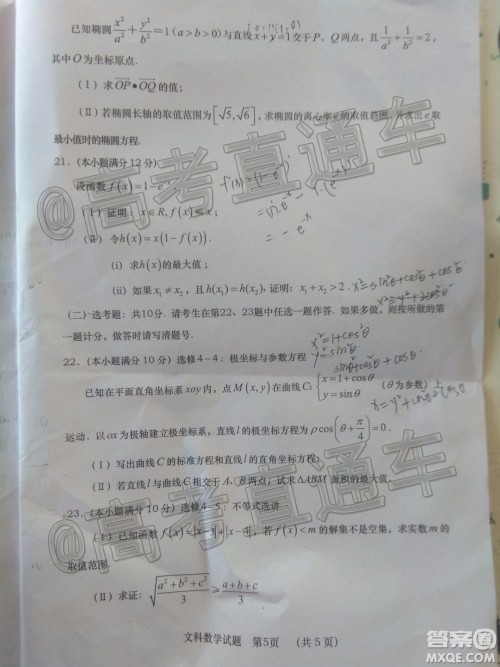 已知椭圆 x²/a² + y²/b² = 1 (a > b > 0) 与直线 x + y = 1 交于 P、Q 两点，且 1/a² + 1/b² = 2，
其中 O 为坐标原点.
(Ⅰ) 求 OP • OQ 的值；
(Ⅱ) 若椭圆长轴的取值范围为 [√5, √6]，求椭圆的离心率 e 的取值范围，并求出 e 取
最小值时的椭圆方程.
21.（本小题满分12分）
设函数 f(x) = 1 − e⁻ˣ.
(Ⅰ) 证明：x ∈ R, f(x) ≤ x；
(Ⅱ) 令 h(x) = x(1 − f(x)).
(i) 求 h(x) 的最大值；
(ii) 如果 x₁ ≠ x₂，且 h(x₁) = h(x₂)，证明：x₁ + x₂ > 2.
(二) 选考题：共10分. 请考生在第22、23题中任选一题作答. 如果多做，则按所做的第
一题计分，做答时请写清题号.
22.（本小题满分10分）选修4-4：极坐标与参数方程
已知在平面直角坐标系 xoy 内，点 M(x, y) 在曲线 C: { x = 1 + cosθ, y = sinθ （θ 为参数）上
运动. 以 ox 为极轴建立极坐标系，直线 l 的极坐标方程为 ρcos(θ + π/4) = 0.
(Ⅰ) 写出曲线 C 的标准方程和直线 l 的直角坐标方程；
(Ⅱ) 若直线 l 与曲线 C 相交于 A、B 两点，试求 △ABM 面积的最大值.
23.（本小题满分10分）选修4-5：不等式选讲
(Ⅰ) 已知函数 f(x) = |x − 3| + |x − |，若 f(x) < m 的解集不是空集，求实数 m 的
取值范围.
(Ⅱ) 求证：√((a² + b² + c²)/3) ≥ (a + b + c)/3
文科数学试题 第5页 （共5页）
x² = 1 + cos²θ
y² = sin²θ
= − e⁻ˣ
@高考直通车
@高考直通车
答案圈
MXQE.COM